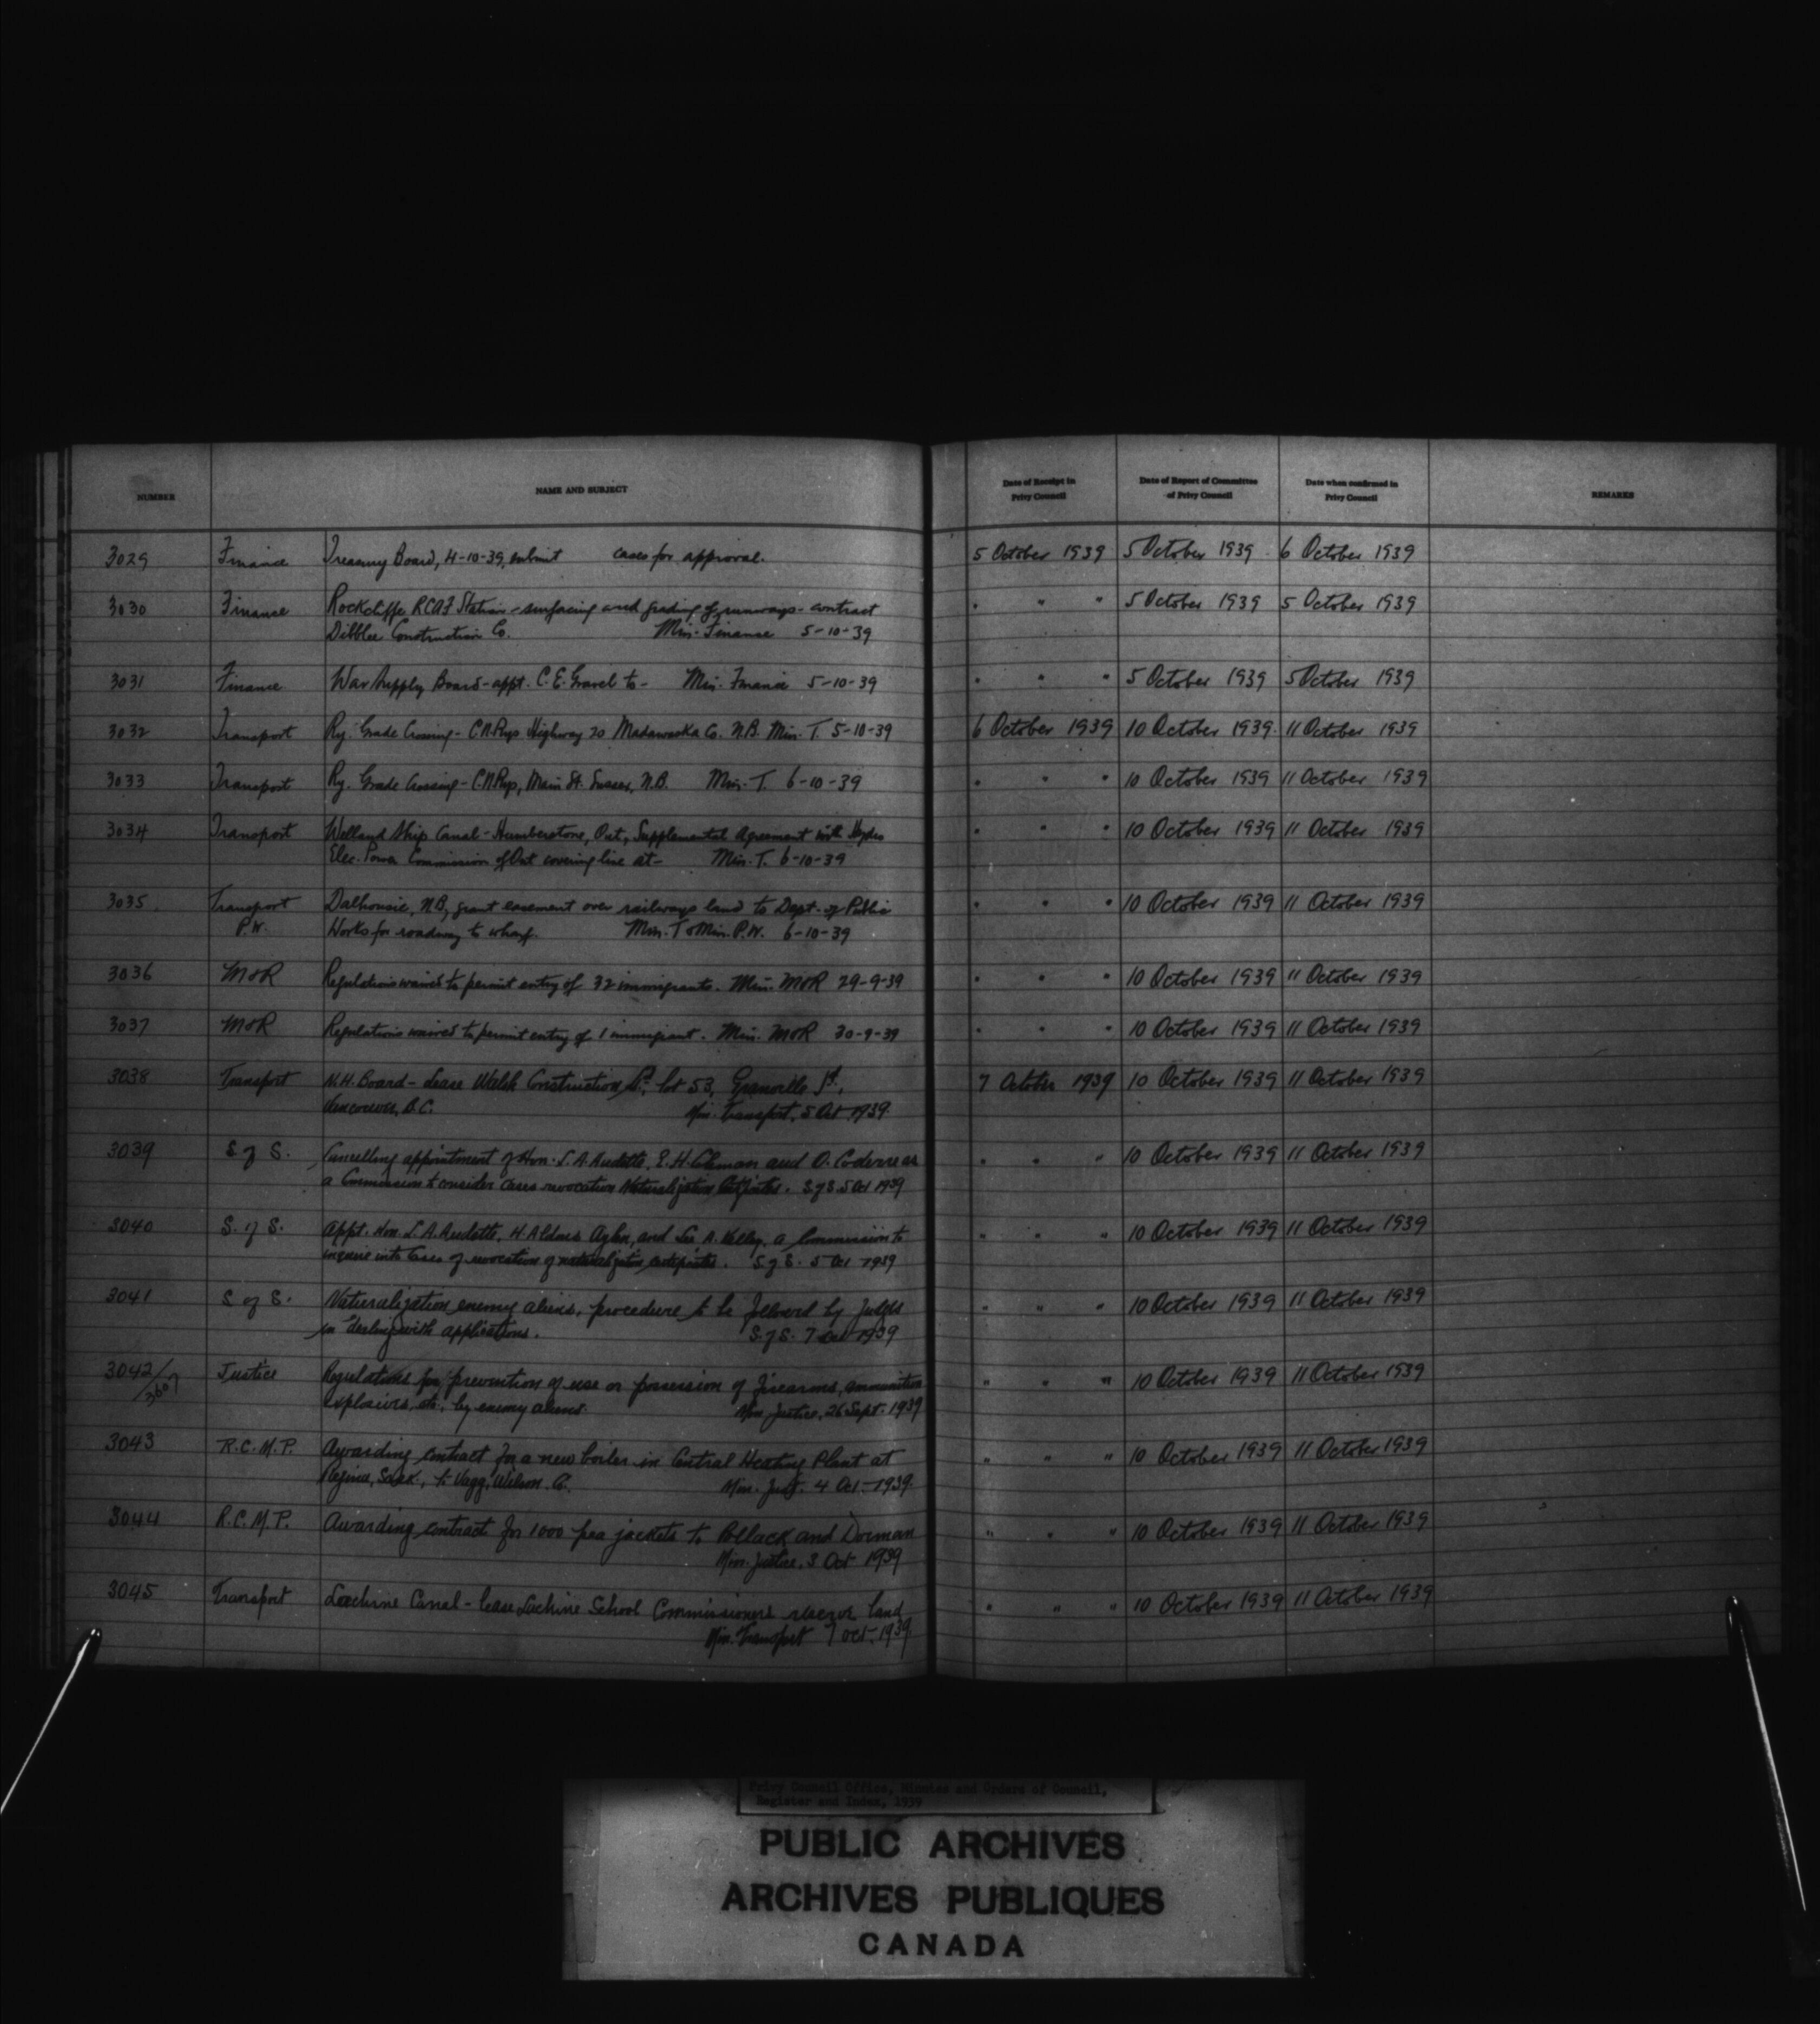 NUMBER NAME AND SUBJECT Date of Receipt in Privy Council Date of Report of Committee of Privy Council Date when confirmed in Privy Council REMARKS
3029 Finance Treasury Board, 4-10-39, submit cases for approval. 5 October 1939 5 October 1939 6 October 1939
3030 Finance Rockcliffe RCAF Station - surfacing and grading of runways - contract " " " 5 October 1939 5 October 1939
Dibblee Construction Co. Min. Finance 5-10-39
3031 Finance War Supply Board - appt. C.E. Gravel to - Min. Finance 5-10-39 " " " 5 October 1939 5 October 1939
3032 Transport Ry. Grade Crossing - C.N.Rys Highway 20 Madawaska Co. N.B. Min. T. 5-10-39 6 October 1939 10 October 1939 11 October 1939
3033 Transport Ry. Grade Crossing - C.N.Rys, Main St. Sussex, N.B. Min. T. 6-10-39 " " " 10 October 1939 11 October 1939
3034 Transport Welland Ship Canal - Humberstone, Ont, Supplemental Agreement with Hydro " " " 10 October 1939 11 October 1939
Elec. Power Commission of Ont covering line at - Min. T. 6-10-39
3035 Transport Dalhousie, N.B, grant easement over railways land to Dept. of Public " " " 10 October 1939 11 October 1939
P.W. Works for roadway to wharf. Min. T & Min. P.W. 6-10-39
3036 M&R Regulations waived to permit entry of 32 immigrants. Min. M&R 29-9-39 " " " 10 October 1939 11 October 1939
3037 M&R Regulations waived to permit entry of 1 immigrant. Min. M&R 30-9-39 " " " 10 October 1939 11 October 1939
3038 Transport N.H. Board - Lease Walsh Construction Lot 53, Granville Vancouver, B.C. 7 October 1939 10 October 1939 11 October 1939
Min. Transport, 5 Oct 1939
3039 S of S. Cancelling appointment of Hon. L.A. Audette, E.H. Coleman and O. Coderre as " " " 10 October 1939 11 October 1939
a Commission to consider cases revocation Naturalization Certificates. S of S 5 Oct 1939
3040 S. of S. Appt. Hon. L.A. Audette, H. Aldous Aylen, and Leo A. Kelley, a Commission to " " " 10 October 1939 11 October 1939
inquire into Cases of revocation of naturalization certificates. S of S. 5 Oct 1939
3041 S of S. Naturalization enemy aliens, procedure to be followed by Judges " " " 10 October 1939 11 October 1939
in dealing with applications. S. of S. 7 Oct 1939
3042/3607 Justice Regulations for prevention of use or possession of firearms, ammunition " " " 10 October 1939 11 October 1939
explosives, etc., by enemy aliens. Min. Justice, 26 Sept. 1939
3043 R.C.M.P. Awarding contract for a new boiler in Central Heating Plant at " " " 10 October 1939 11 October 1939
Regina, Sask., to Vagg, Wilson Co. Min. Just. 4 Oct. 1939.
3044 R.C.M.P. Awarding contract for 1000 pea jackets to Pollack and Dorman " " " 10 October 1939 11 October 1939
Min. Justice, 3 Oct 1939
3045 Transport Lachine Canal - lease Lachine School Commissioners reserve land " " " 10 October 1939 11 October 1939
Min. Transport 7 Oct. 1939
Privy Council Office, Minutes and Orders of Council,
Register and Index, 1939
PUBLIC ARCHIVES
ARCHIVES PUBLIQUES
CANADA